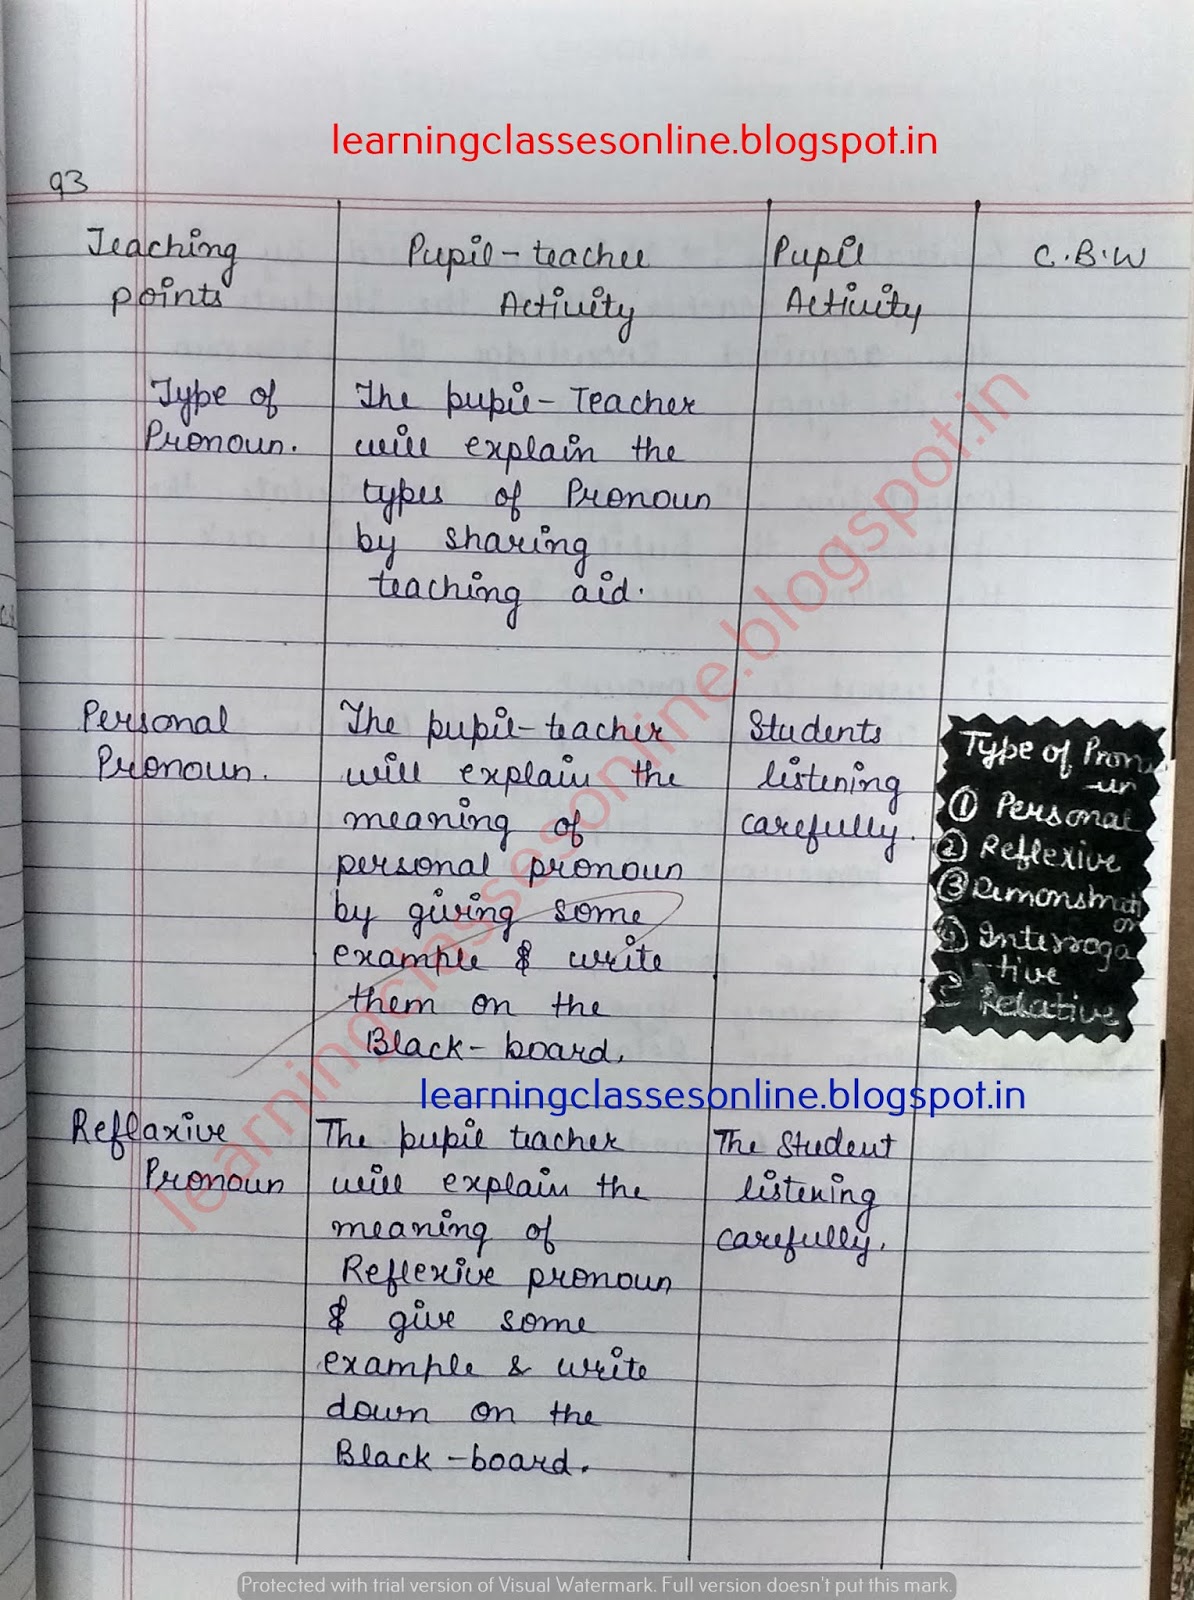 learningclassesonline.blogspot.in
93
Teaching points
Pupil-teacher Activity
Pupil Activity
C.B.W
Type of
Pronoun.
The pupil-Teacher
will explain the
types of Pronoun
by sharing
teaching aid.
Personal
Pronoun.
The pupil-teacher
will explain the
meaning of
personal pronoun
by giving some
example & write
them on the
Black-board.
Students
listening
carefully.
Type of Prono
-un
① Personal
② Reflexive
③ Demonstrati
on
④ Interroga
tive
Relative
learningclassesonline.blogspot.in
Reflaxive
Pronoun
The pupil teacher
will explain the
meaning of
Reflexive pronoun
& give some
example & write
down on the
Black-board.
The Student
listening
carefully.
learningclassesonline.blogspot.in
Protected with trial version of Visual Watermark. Full version doesn't put this mark.